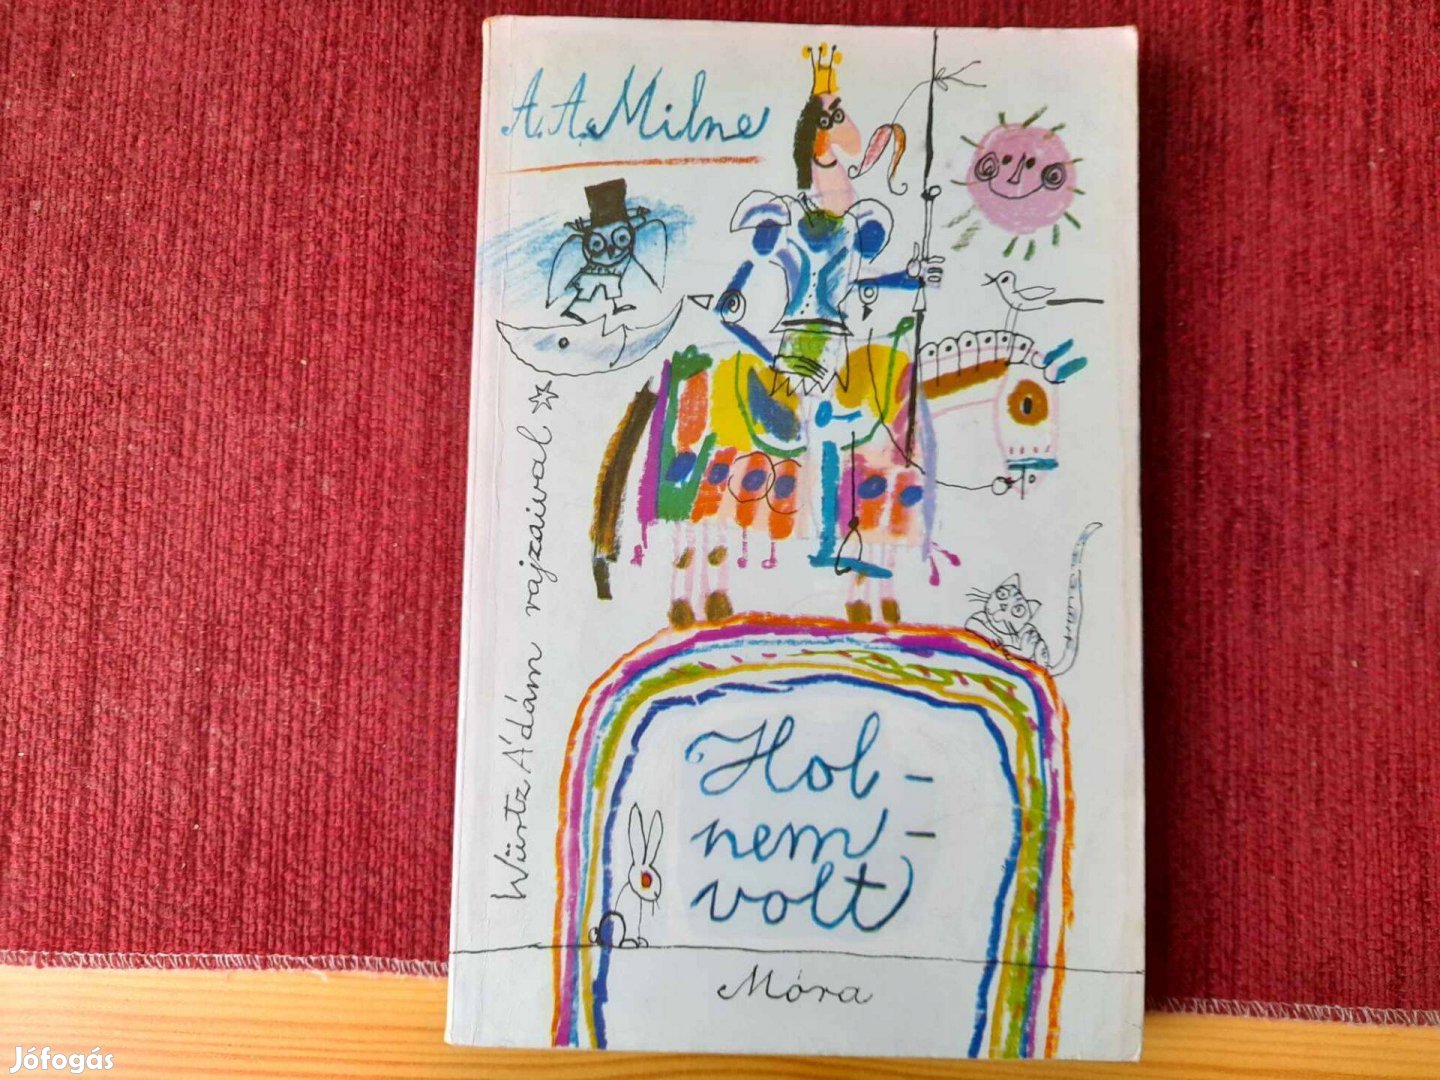 A. A. Milne
Würtz Ádám rajzaival
Hol-
nem-
volt
Móra
Jófogás